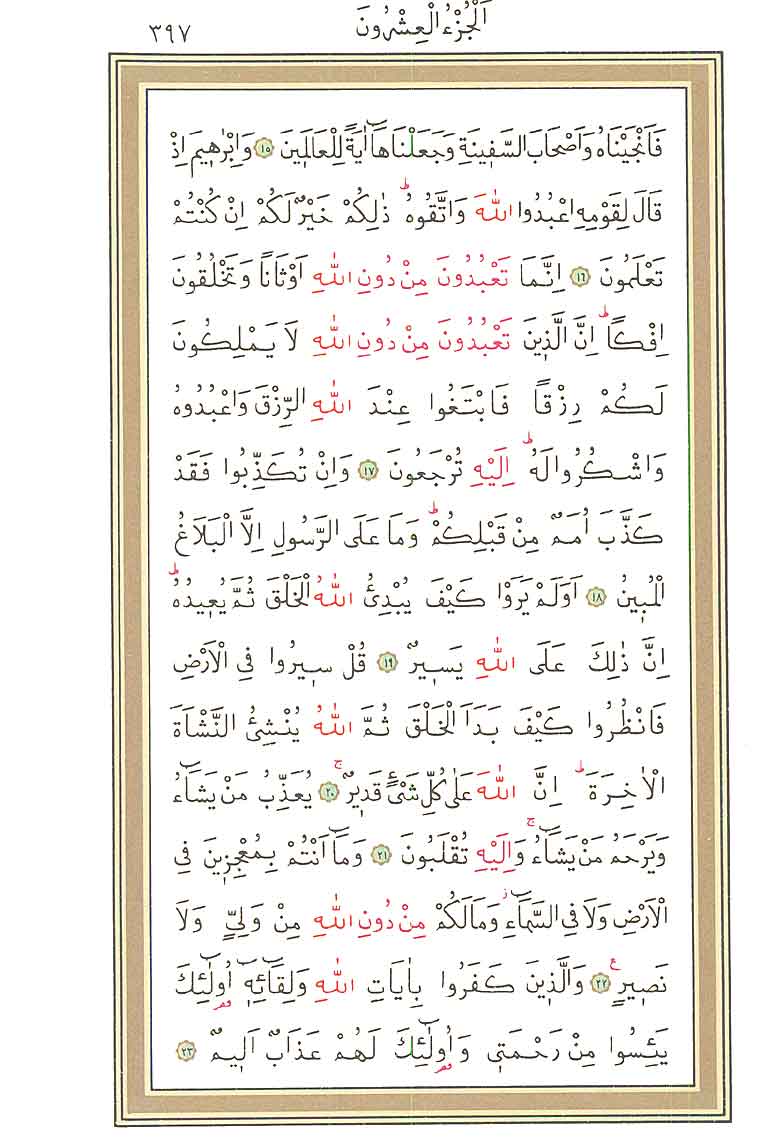 اَلْجُزْءُ الْعِشْرُونَ ٣٩٧
فَاَنْجَيْنَاهُ وَاَصْحَابَ السَّفٖينَةِ وَجَعَلْنَاهَٓا اٰيَةً لِلْعَالَمٖينَ ١٥ وَاِبْرٰهٖيمَ اِذْ
قَالَ لِقَوْمِهِ اعْبُدُوا اللّٰهَ وَاتَّقُوهُؕ ذٰلِكُمْ خَيْرٌ لَكُمْ اِنْ كُنْتُمْ
تَعْلَمُونَ ١٦ اِنَّمَا تَعْبُدُونَ مِنْ دُونِ اللّٰهِ اَوْثَاناً وَتَخْلُقُونَ
اِفْكاًؕ اِنَّ الَّذٖينَ تَعْبُدُونَ مِنْ دُونِ اللّٰهِ لَا يَمْلِكُونَ
لَكُمْ رِزْقاً فَابْتَغُوا عِنْدَ اللّٰهِ الرِّزْقَ وَاعْبُدُوهُ
وَاشْكُرُوا لَهُؕ اِلَيْهِ تُرْجَعُونَ ١٧ وَاِنْ تُكَذِّبُوا فَقَدْ
كَذَّبَ اُمَمٌ مِنْ قَبْلِكُمْؕ وَمَا عَلَى الرَّسُولِ اِلَّا الْبَلَاغُ
الْمُبٖينُ ١٨ اَوَلَمْ يَرَوْا كَيْفَ يُبْدِئُ اللّٰهُ الْخَلْقَ ثُمَّ يُعٖيدُهُؕ
اِنَّ ذٰلِكَ عَلَى اللّٰهِ يَسٖيرٌ ١٩ قُلْ سٖيرُوا فِى الْاَرْضِ
فَانْظُرُوا كَيْفَ بَدَاَ الْخَلْقَ ثُمَّ اللّٰهُ يُنْشِئُ النَّشْاَةَ
الْاٰخِرَةَؕ اِنَّ اللّٰهَ عَلٰى كُلِّ شَیْءٍ قَدٖيرٌۚ ٢٠ يُعَذِّبُ مَنْ يَشَٓاءُ
وَيَرْحَمُ مَنْ يَشَٓاءُۚ وَاِلَيْهِ تُقْلَبُونَ ٢١ وَمَٓا اَنْتُمْ بِمُعْجِزٖينَ فِى
الْاَرْضِ وَلَا فِى السَّمَٓاءِؗ وَمَا لَكُمْ مِنْ دُونِ اللّٰهِ مِنْ وَلِىٍّ وَلَا
نَصٖيرٍ ࣖ ٢٢ وَالَّذٖينَ كَفَرُوا بِاٰيَاتِ اللّٰهِ وَلِقَٓائِهٖٓ اُو۬لٰٓئِكَ
يَئِسُوا مِنْ رَحْمَتٖى وَاُو۬لٰٓئِكَ لَهُمْ عَذَابٌ اَلٖيمٌ ٢٣